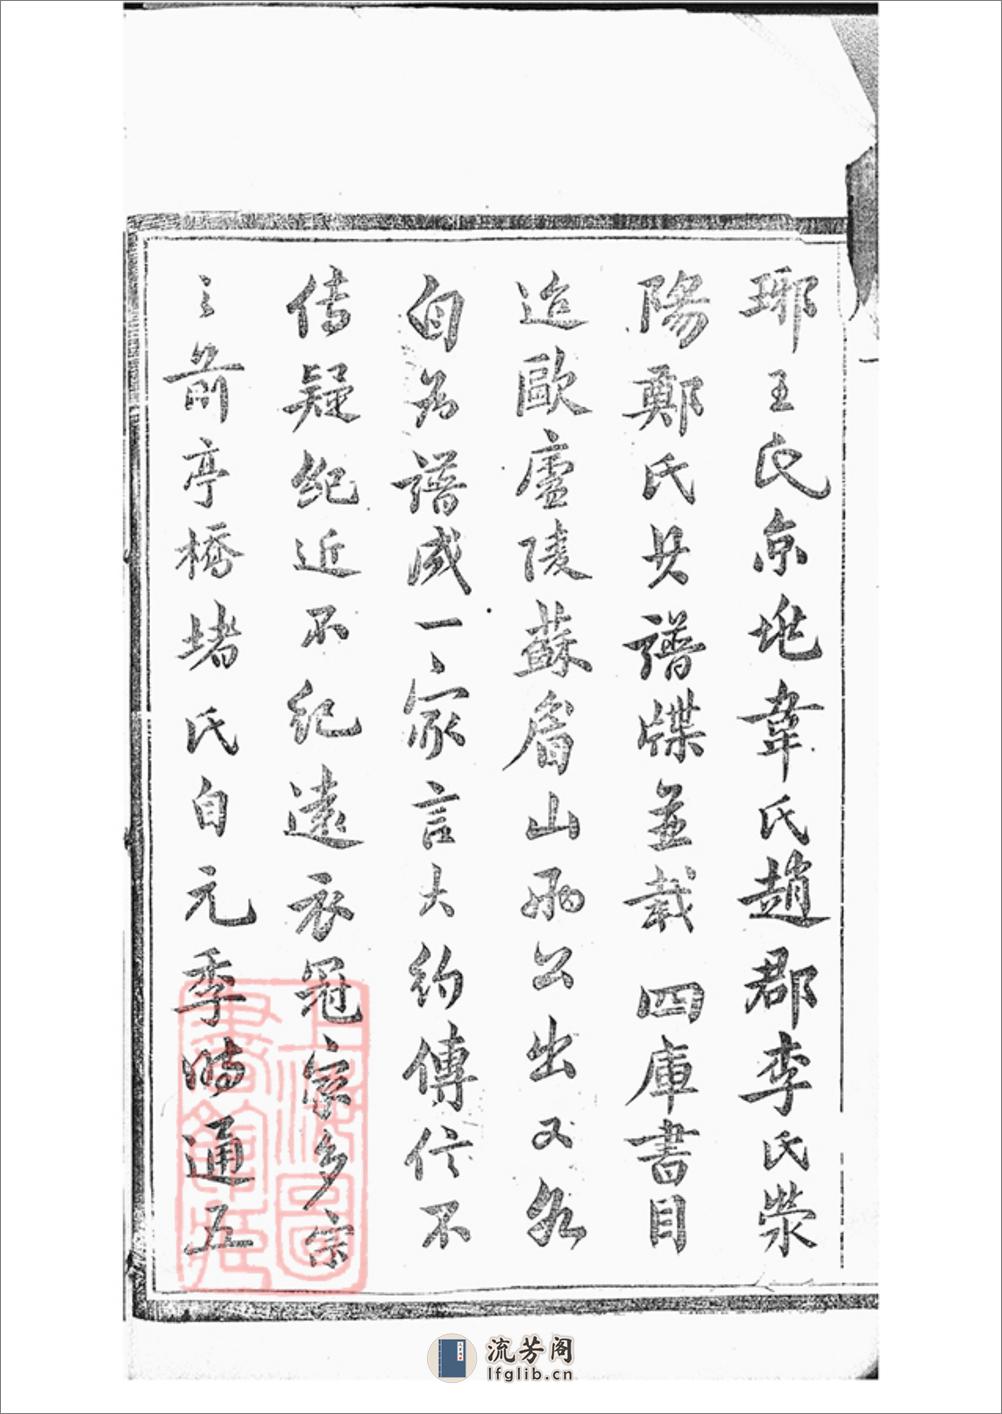 瑯王氏京兆韋氏趙郡李氏滎
陽鄭氏其譜牒並載四庫書目
迨歐廬陵蘇眉山兩公出又各
自為譜成一家言大約傳信不
传疑纪近不纪遠衣冠家多宗
之前亭橋堵氏自元季時通五
上海圖
書館藏
流芳阁
lfglib.cn